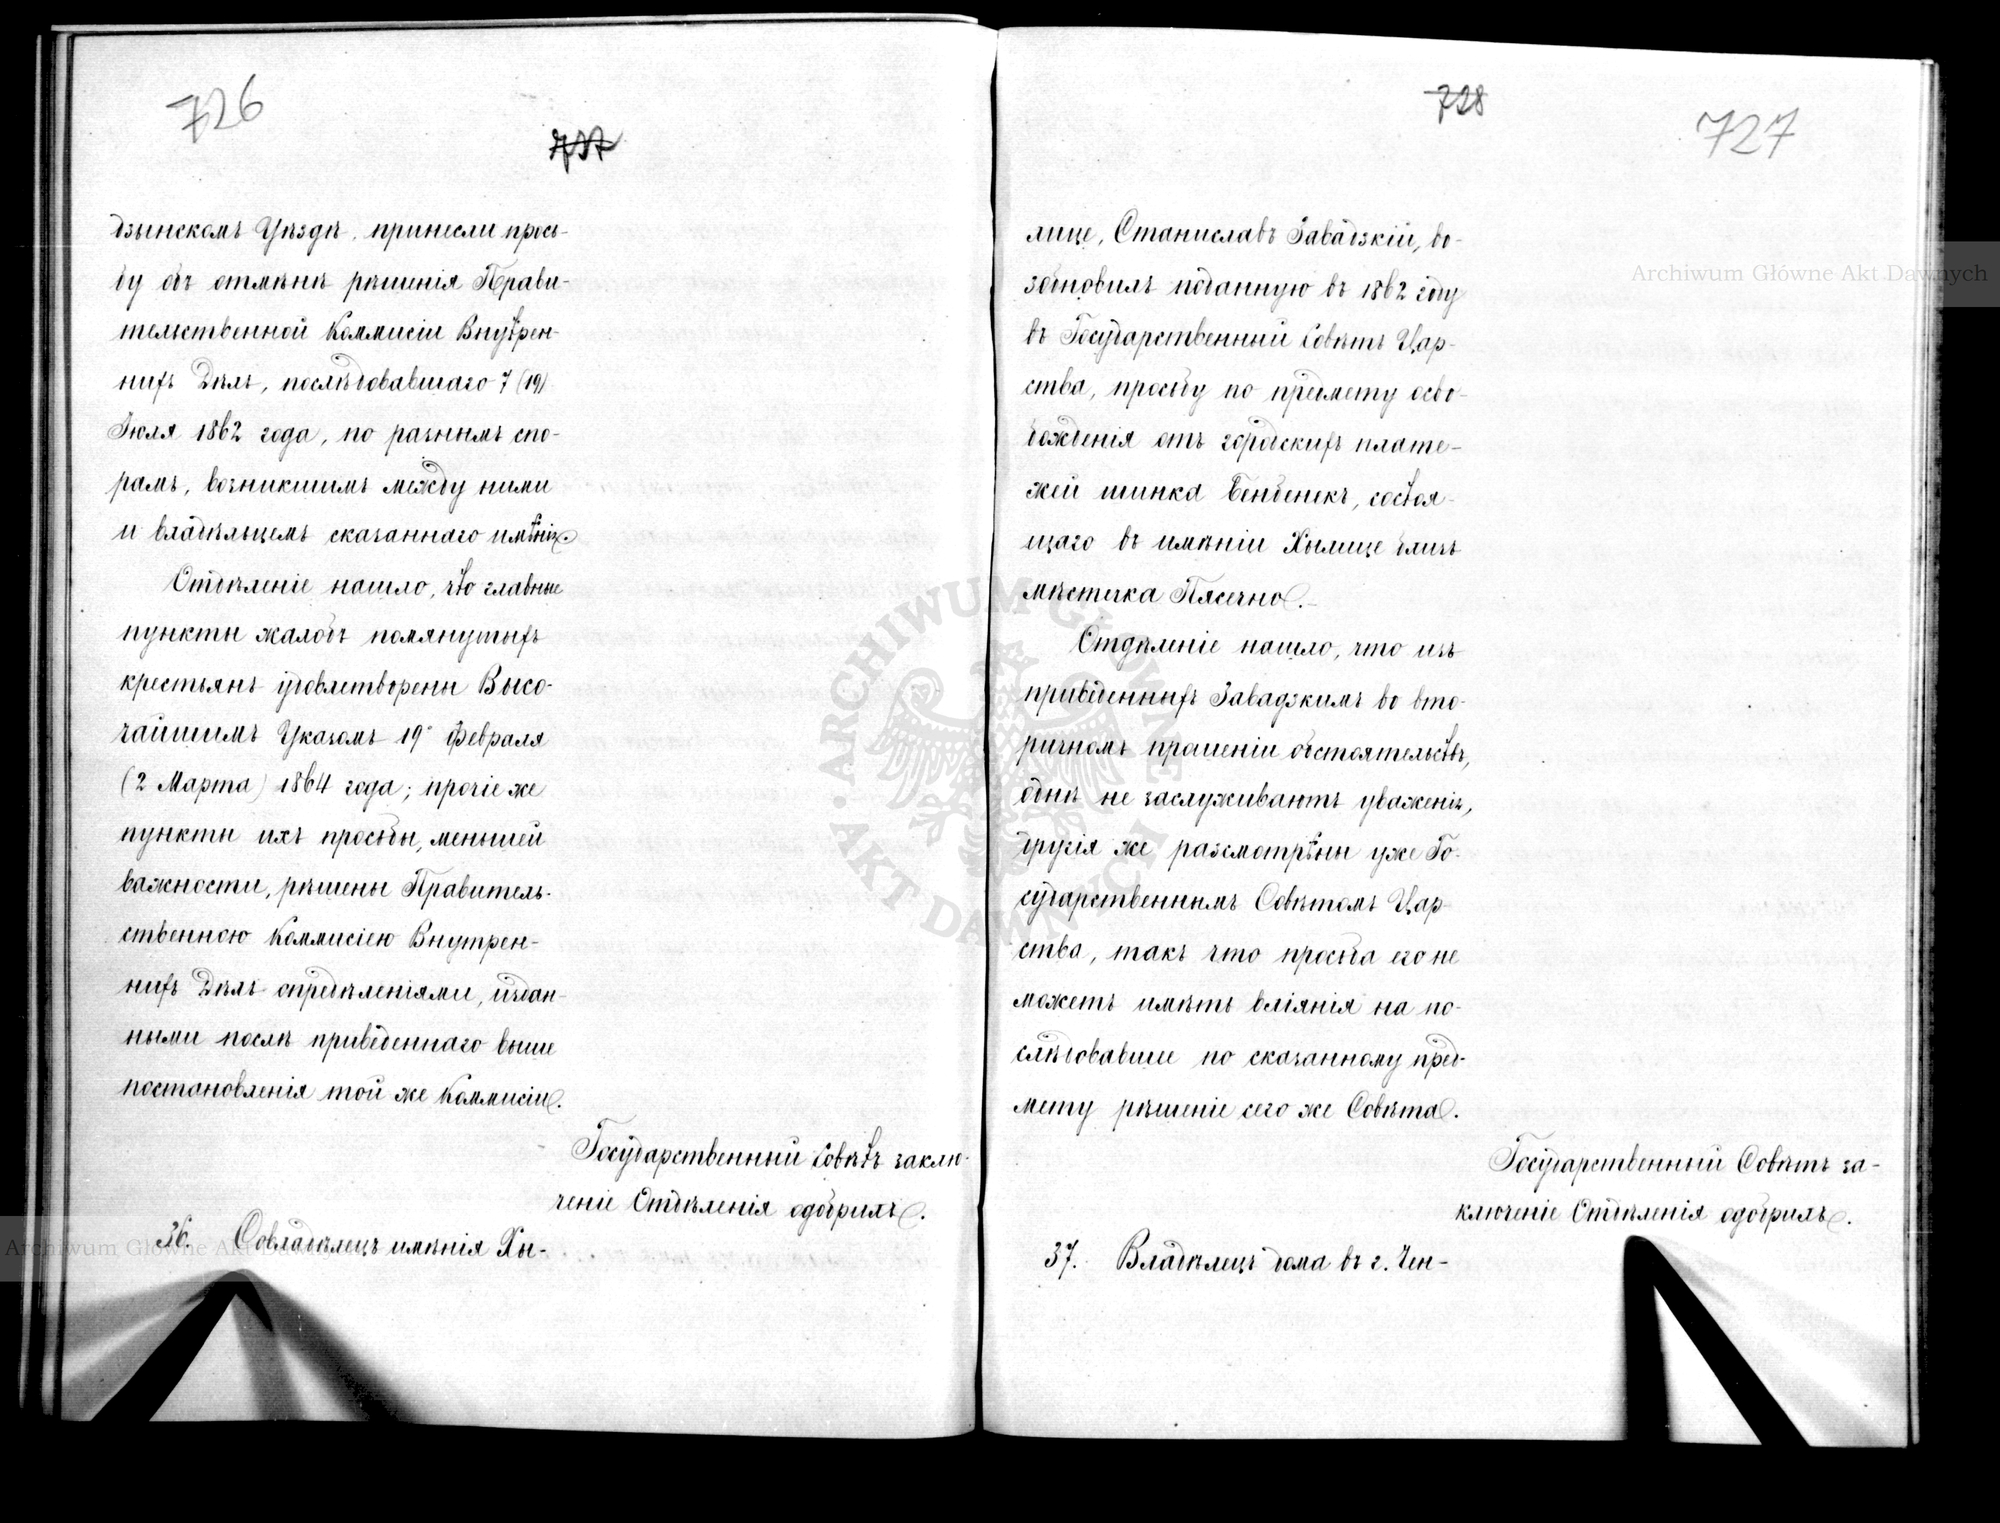 726
737
дзынскомъ Уѣздѣ, принесли прось-
бу объ отмѣнѣ рѣшенія Прави-
тельственной Коммисіи Внутрен-
нихъ Дѣлъ, послѣдовавшаго 7 (19)
Іюля 1862 года, по разнымъ спо-
рамъ, возникшимъ между ними
и владѣльцемъ сказаннаго имѣнія.
Отдѣленіе нашло, что главные
пункты жалобъ помянутыхъ
крестьянъ удовлетворены Высо-
чайшимъ Указомъ 19 Февраля
(2 Марта) 1864 года; прочіе же
пункты ихъ просьбы, меньшей
важности, рѣшены Правитель-
ственною Коммисіею Внутрен-
нихъ Дѣлъ опредѣленіями, издан-
ными послѣ приведеннаго выше
постановленія той же Коммисіи.
Государственный Совѣтъ заклю-
ченіе Отдѣленія одобрилъ.
36. Совладѣлецъ имѣнія Хы-
728
727
лице, Станиславъ Завадзкій, во-
зобновилъ поданную въ 1862 году
въ Государственный Совѣтъ Цар-
ства, просьбу по предмету осво-
божденія отъ городскихъ плате-
жей шинка Бенбенекъ, состоя-
щаго въ имѣніи Хылице близъ
мѣстечка Пясечно.
Отдѣленіе нашло, что изъ
приведенныхъ Завадзкимъ во вто-
ричномъ прошеніи обстоятельствъ,
однѣ не заслуживаютъ уваженія,
другія же разсмотрѣны уже Го-
сударственнымъ Совѣтомъ Цар-
ства, такъ что просьба его не
можетъ имѣть вліянія на по-
слѣдовавшее по сказанному пред-
мету рѣшеніе сего же Совѣта.
Государственный Совѣтъ за-
ключеніе Отдѣленія одобрилъ.
37. Владѣлецъ дома въ г. Чен-
Archiwum Główne Akt Dawnych
Archiwum Główne Akt
ARCHIWUM GŁÓWNE AKT DAWNYCH